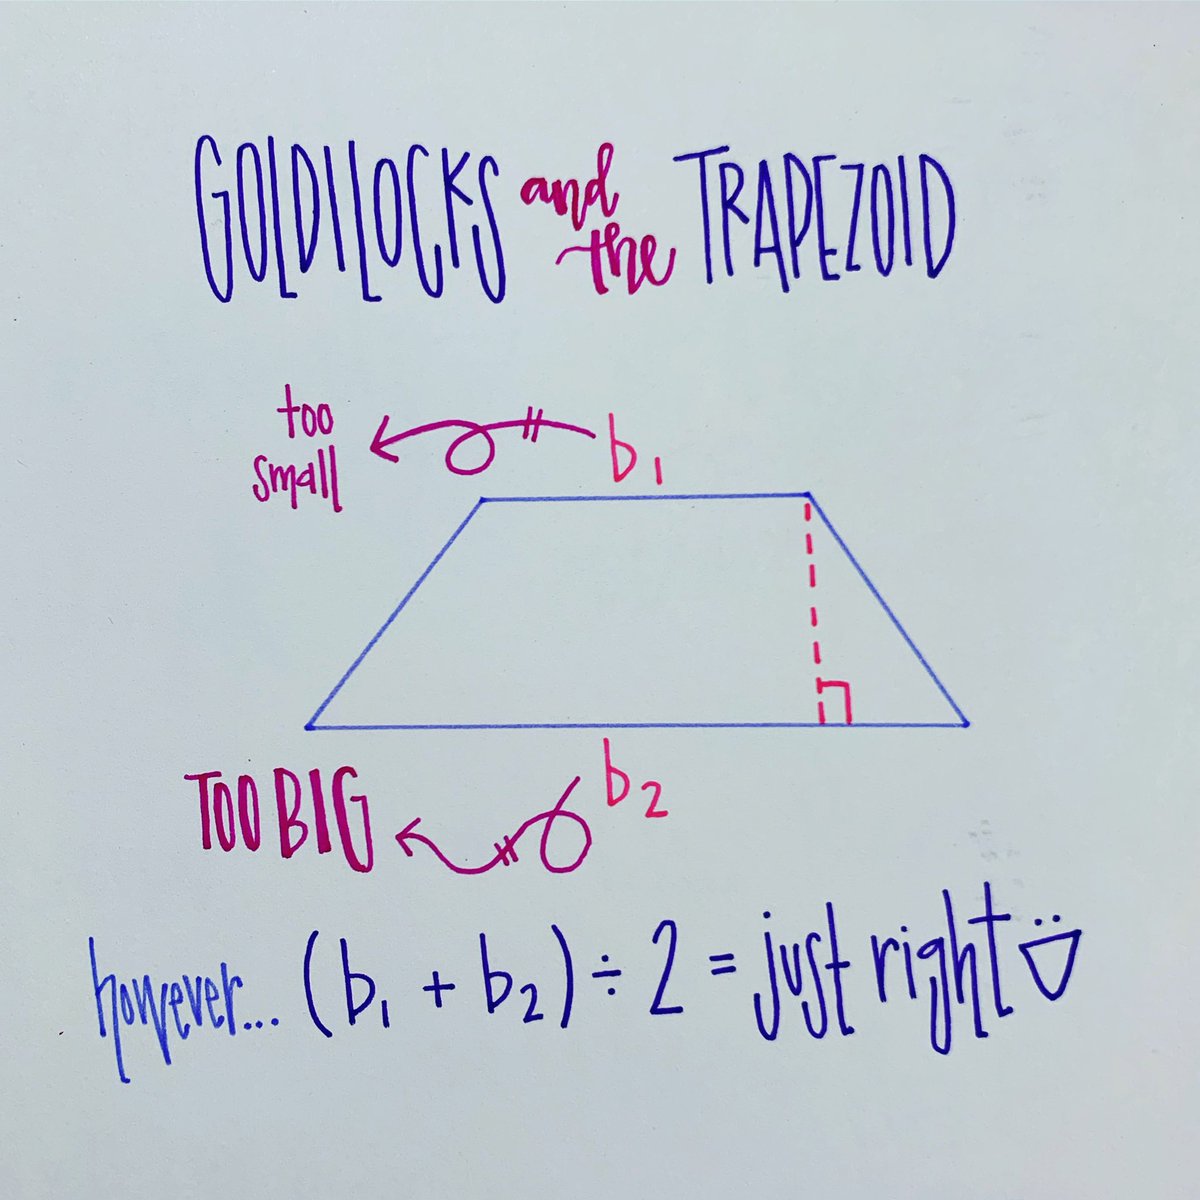 GOLDILOCKS and the TRAPEZOID
too
small
b₁
b₂
TOO BIG
however... (b₁ + b₂) ÷ 2 = just right